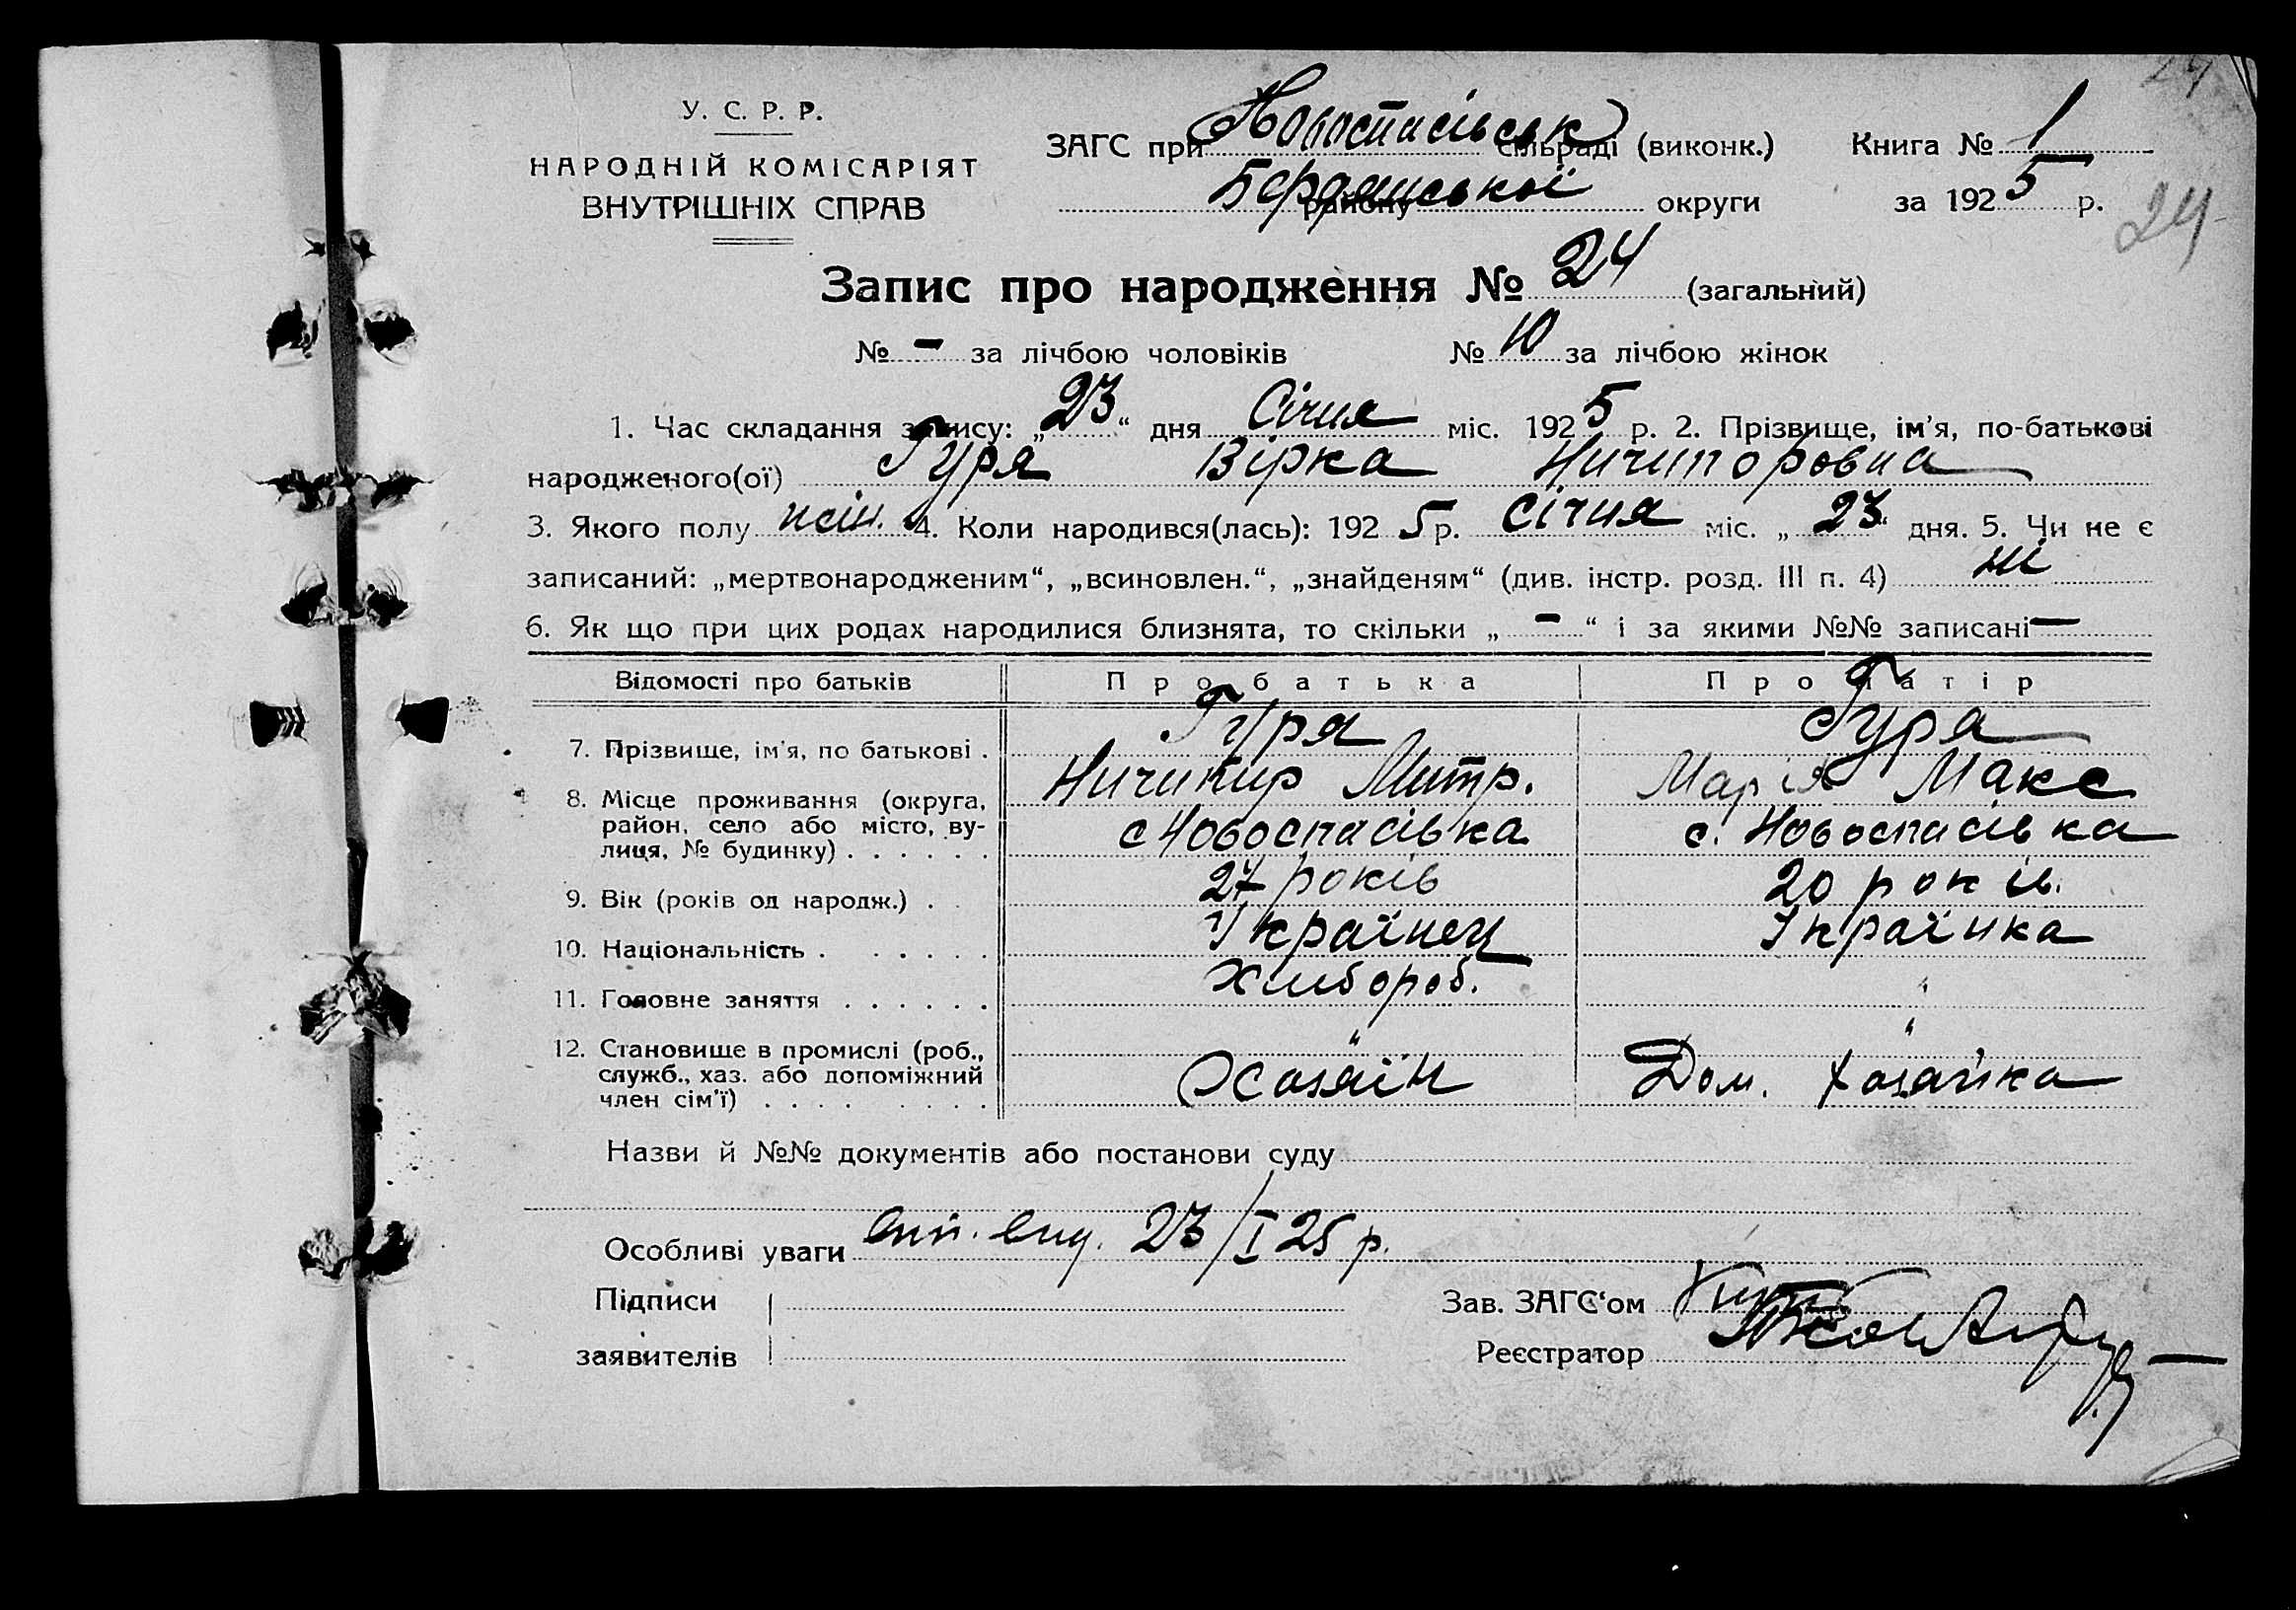 24
У. С. Р. Р.
НАРОДНІЙ КОМІСАРІЯТ
ВНУТРІШНІХ СПРАВ
ЗАГС при Новоспасівськ сільраді (виконк.) Книга № 1
району Бердянської округи за 1925 р.
24
Запис про народження № 24 (загальний)
№ - за лічбою чоловіків № 10 за лічбою жінок
1. Час складання запису: „23“ дня Січня міс. 1925 р. 2. Прізвище, ім'я, по-батькові
народженого(ої) Гуря Вірка Ничипоровна
3. Якого полу жін. 4. Коли народився(лась): 1925 р. Січня міс. „23“ дня. 5. Чи не є
записаний: „мертвонародженим“, „всиновлен.“, „знайденям“ (див. інстр. розд. III п. 4) ні
6. Як що при цих родах народилися близнята, то скільки „-“ і за якими №№ записані —
Відомості про батьків Про батька Про матір
Гуря Гуря
7. Прізвище, ім'я, по батькові .
Ничипир Митр. Марія Макс
8. Місце проживання (округа,
район, село або місто, ву-
лиця, № будинку) . . . . . .
с Новоспасівка с. Новоспасівка
9. Вік (років од народж.) . 27 років 20 років.
10. Національність . . . . . . Українец Українка
11. Головне заняття . . . . . . Хлібороб. "
12. Становище в промислі (роб.,
служб., хаз. або допоміжний
член сім'ї) . . . . . . . .
" "
Хозяїн Дом. Хозяйка
Назви й №№ документів або постанови суду
Особливі уваги 23/I 25 р.
Підписи
заявителів
Зав. ЗАГС'ом
Реєстратор